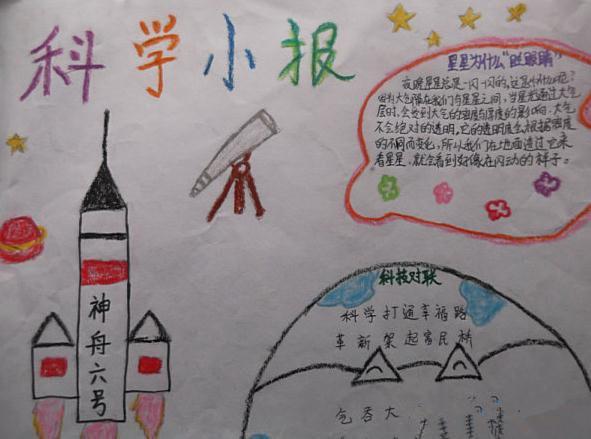 科学小报
星星为什么“眨眼睛”
夜晚星星总是一闪一闪的,这是为什么呢?
因为大气隔在我们与星星之间,当星光通过大气
层时,会受到大气的密度与厚度的影响。大气
不会绝对的透明,它的透明度会根据密度
的不同而变化,所以我们在地面透过它来
看星星,就会看到好像在闪动的样子。
科技对联
科学打通幸福路
革新架起富民桥
神舟六号
气吞大